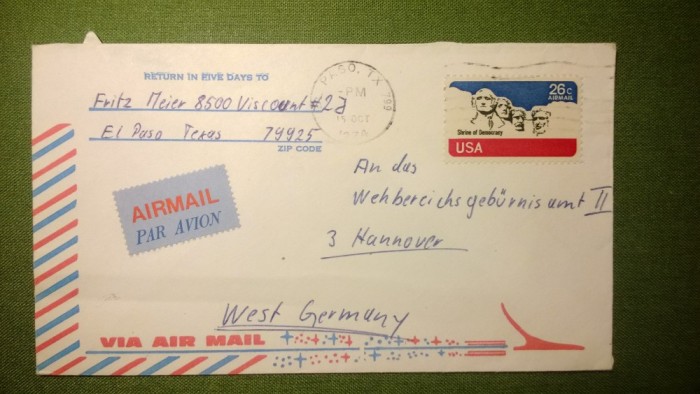 RETURN IN FIVE DAYS TO
Fritz Meier 8500 Viscount #2J
El Paso Texas 79925
ZIP CODE
PASO, TX 799
PM
15 OCT
26c
AIRMAIL
Shrine of Democracy
USA
AIRMAIL
PAR AVION
An das
Wehbereichsgebürnisamt II
3 Hannover
West Germany
VIA AIR MAIL